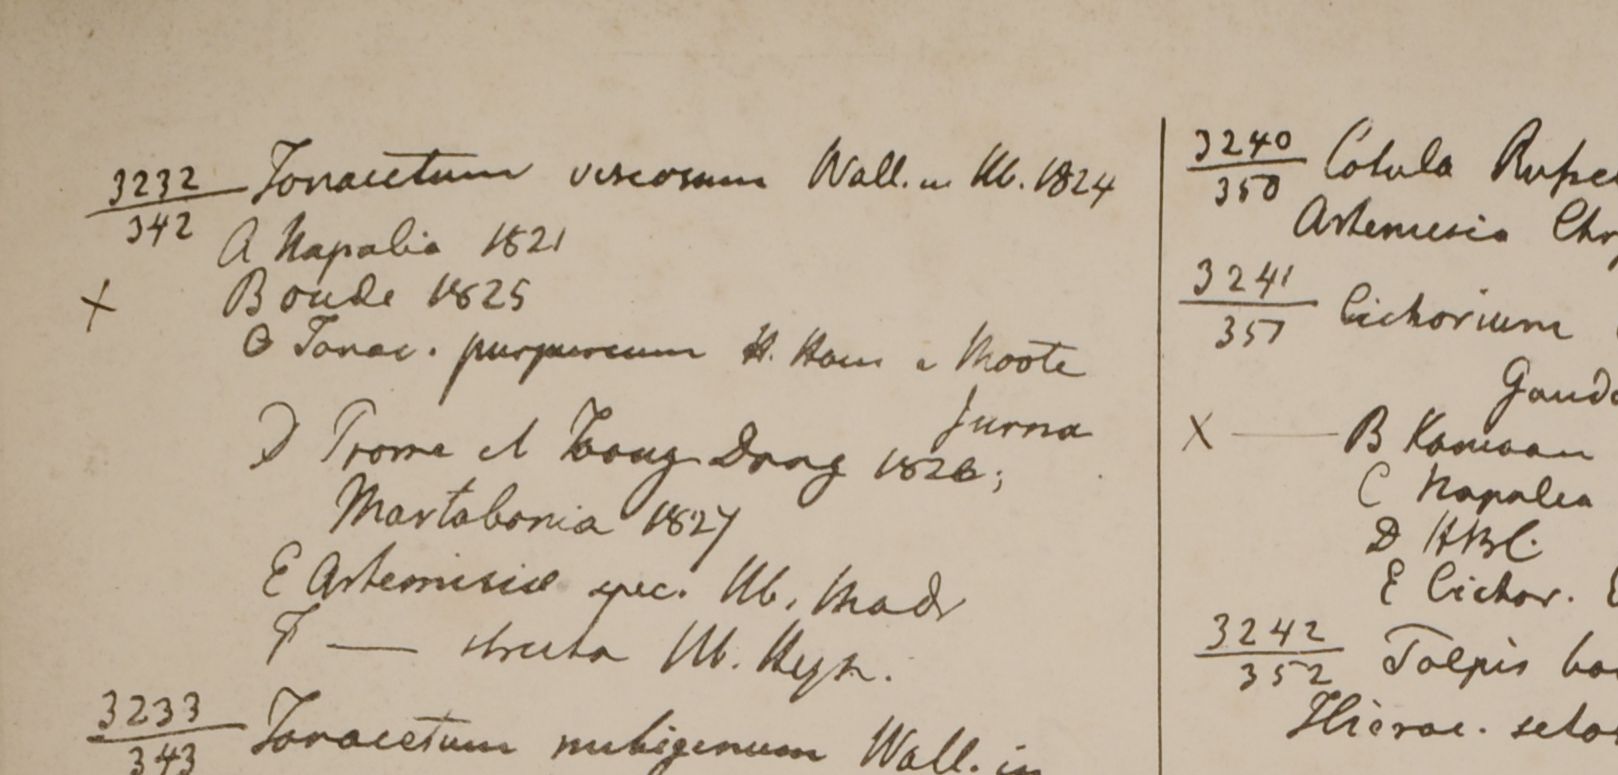 3232/342 Tanacetum viscosum Wall. in Hb. 1824
A Napalia 1821
X B oude 1825
C Tanac. purpureum H. Ham e Moote
Jurna
D Prome et Taong Dong 1826;
Martabania 1827
E Artemisiæ spec. Hb. Madr
F — stricta Hb. Heyn.
3233/343 Tanacetum nubigenum Wall. in
3240/350 Cotula
Artemisia
3241/351 Cichorium
X — B Kamaon
C Napalea
D HBC.
E Cichor.
3242/352 Tolpis
Hierac.